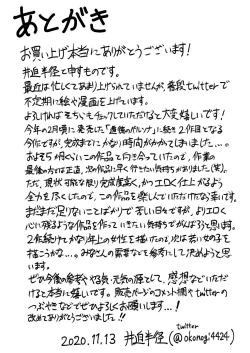 あとがき
お買い上げ本当にありがとうございます!
井迫半径と申すものです。
最近は忙しくてあまり上げられていませんが、普段twitterで
不定期に絵や漫画を上げています。
よろしければそちらもチェックしていただけると大変嬉しいです!
今年の2月頃に発売した「直後のポルノ」に続き2作目となる
今作ですが、完成までにかなり時間がかかってしまいました…。
およそ5ヶ月ぐらいこの作品と向き合っていたので、作業の
最後の方は正直、次の作品に早く行きたい気持ちがありました(笑)。
ただ、現状可能な限り完成度高く、かつエロく仕上がるよう
全力を尽くしたので、この作品を楽しんでいただけたなら幸いです。
まだまだ足りないことばかりで苦しい日々ですが、よりエロく
心に残るような作品を作っていきたい気持ちでがんばろうと思います。
2作続けてかなり年上の女性を描いたので、次は若い女の子を
描こうかな…。みなさんの需要なども参考にして決めようと思
います。
ぜひ今後の参考やら負元気の源として、感想などいただ
けると本当に嬉しいです。販売ページのコメント欄やtwitterの
つぶやきなどでぜひよろしくお願いします…!
改めてありがとうございました!!
twitter
2020.11.13 井迫半径(@okonogi4424)